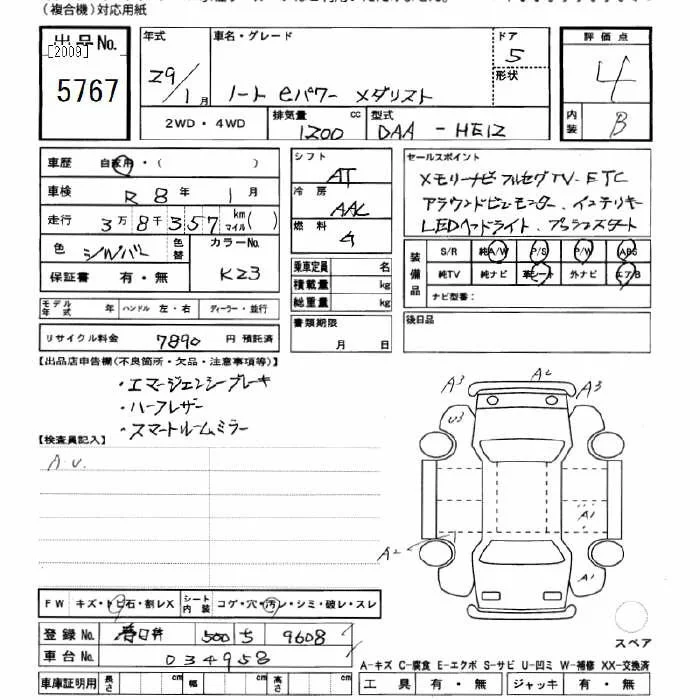 (複合機)対応用紙
出品No.
[2009]
5767
年式
29/1月
車名・グレード
ノート eパワー メダリスト
ドア
5
形状
評価点
4
内装
B
2WD・4WD
排気量
1200 cc
型式
DAA - HE12
車歴 自家用・( )
車検 R 8 年 1 月
走行 3万8千357 km マイル( )
色 シルバー
色替
カラーNo.
K23
保証書 有・無
シフト
AT
冷房
AAC
燃料
乗車定員 名
積載量 kg
総重量 kg
書類期限
月 日
セールスポイント
メモリーナビ フルセグTV・ETC
アラウンドビューモニター、インテリキー
LEDヘッドライト、プッシュスタート
装備品
S/R 純A/W P/S P/W ABS
純TV 純ナビ 革シート 外ナビ エアB
ナビ型番:
後日品
モデル年式 年 ハンドル 左・右 ディーラー・並行
リサイクル料金 7890 円 預託済
【出品店申告欄(不良箇所・欠品・注意事項等)】
・エマージェンシーブレーキ
・ハーフレザー
・スマートルームミラー
【検査員記入】
A.U.
A3 A2 A3
U3
A1
A2
A1
スペア
FW キズ・トビ石・割レX
シート内装 コゲ・穴・汚レ・シミ・破レ・スレ
登録No. 春日井 500 ち 9608
車台No. 034958
車庫証明用 長さ cm 幅 cm 高さ cm
A-キズ C-腐食 E-エクボ S-サビ U-凹ミ W-補修 XX-交換済
工具 有・無 ジャッキ 有・無